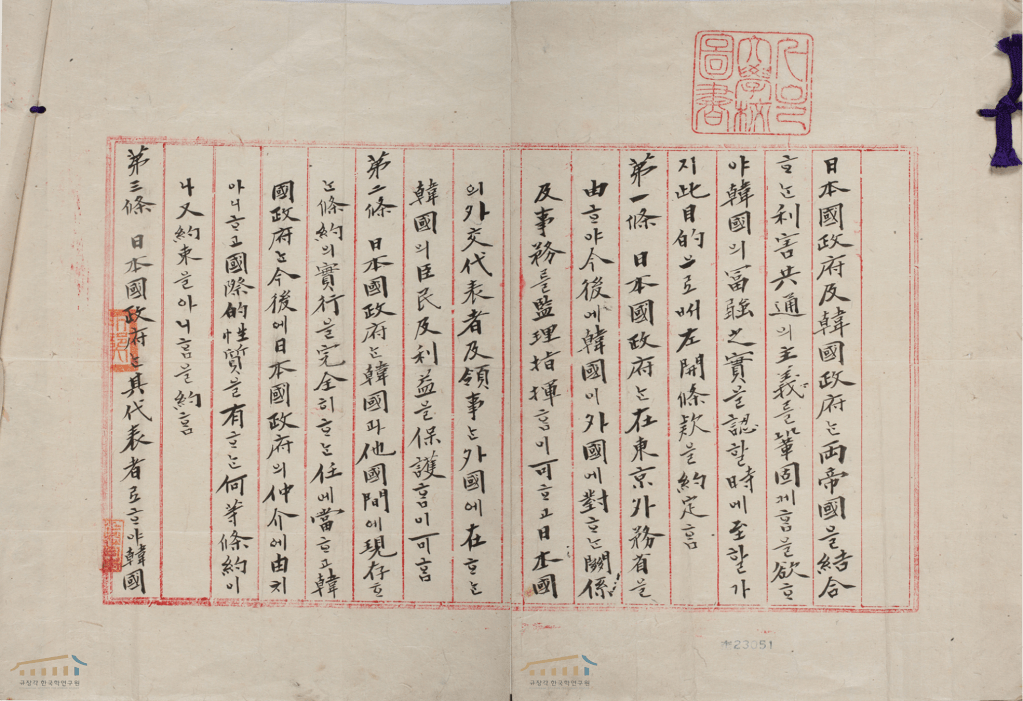 서울大學校圖書
日本國政府及韓國政府는兩帝國을結合
ᄒᆞ는利害共通의主義를鞏固케ᄒᆞᆷ을欲ᄒᆞ
야韓國의冨強之實을認ᄒᆞᆯ時에至ᄒᆞᆯ가
지此目的으로ᄡᅥ左開條欵을約定ᄒᆞᆷ
第一條 日本國政府는在東京外務省을
由ᄒᆞ야今後에韓國이外國에對ᄒᆞ는關係
及事務를監理指揮ᄒᆞᆷ이可ᄒᆞ고日本國
의外交代表者及領事는外國에在ᄒᆞ는
韓國의臣民及利益을保護ᄒᆞᆷ이可ᄒᆞᆷ
第二條 日本國政府는韓國과他國間에現存ᄒᆞ
는條約의實行을完全히ᄒᆞ는任에當ᄒᆞ고韓
國政府는今後에日本國政府의仲介에由치
아니ᄒᆞ고國際的性質을有ᄒᆞ는何等條約이
나又約束을아니ᄒᆞᆷ을約ᄒᆞᆷ
第三條 日本國政府는其代表者로ᄒᆞ야韓國
23051
규장각 한국학연구원
규장각 한국학연구원